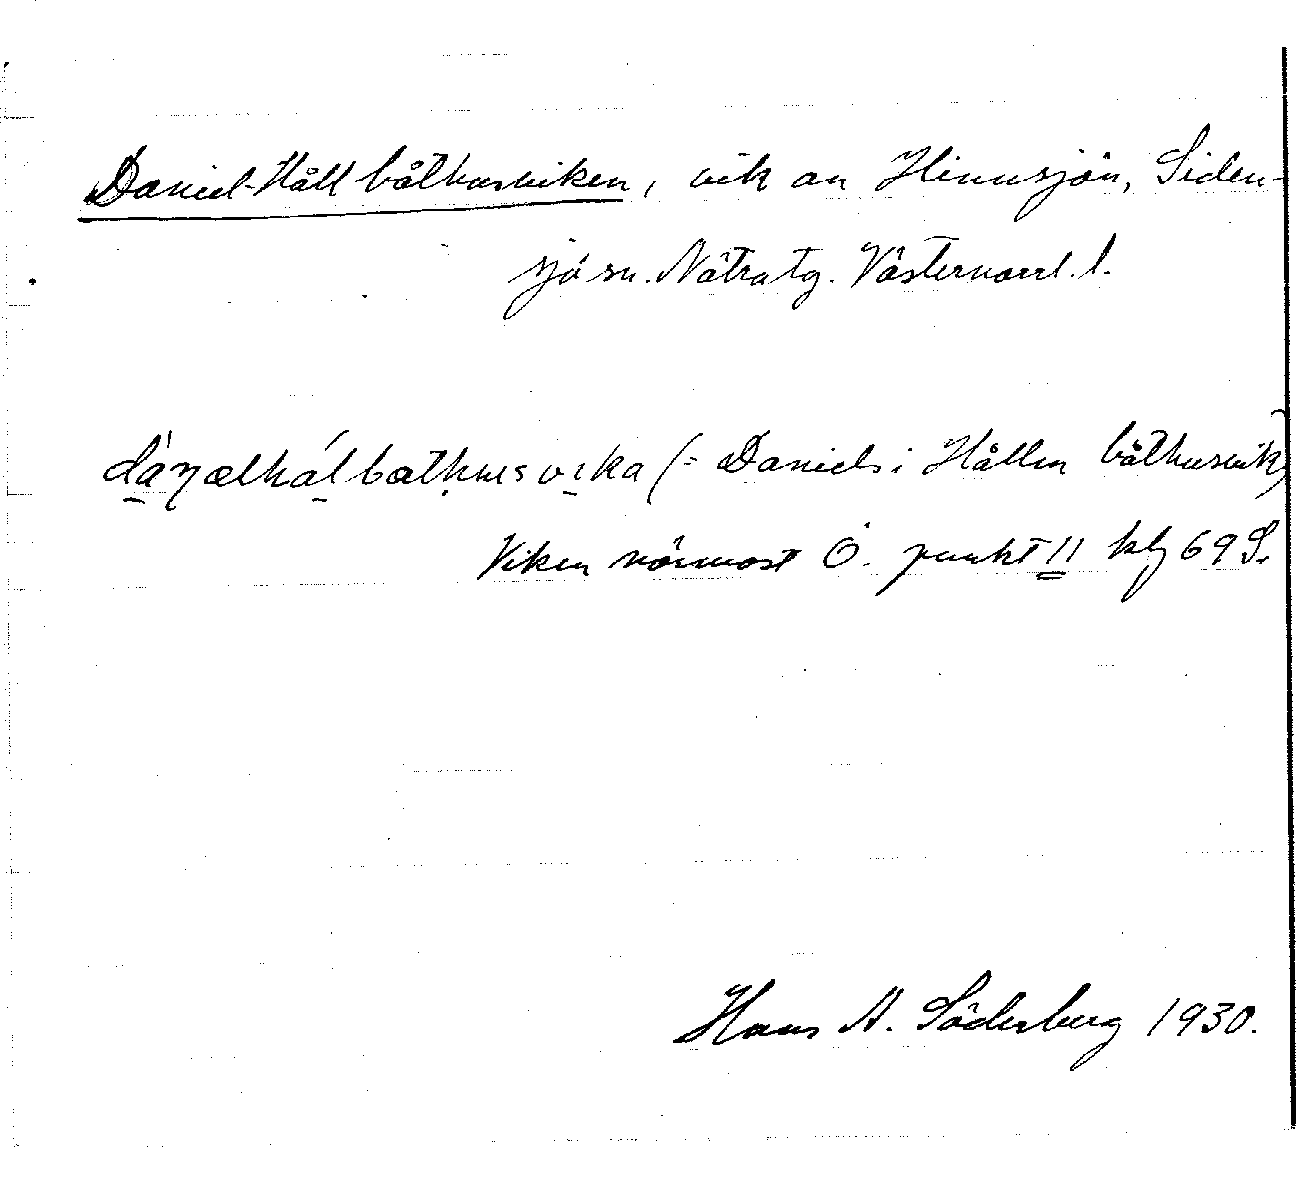 Daniel-Håll båthusviken, vik av Hinnsjön, Siden-
sjö sn. Nätra tg. Västernorrl. l.
(= Daniels i Hållen båthusvik)
Viken närmast Ö. punkt 11 kbl 69 S.
Hans A. Söderberg 1930.